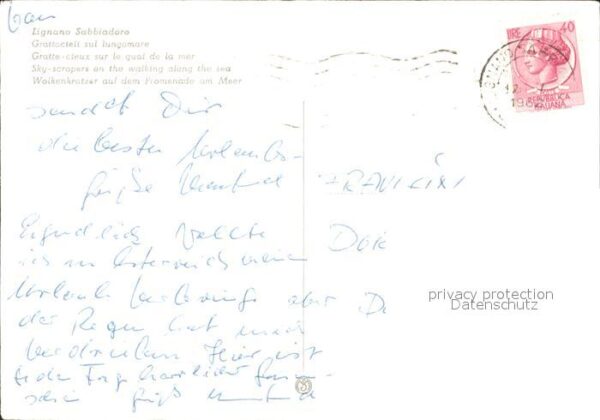 Lignano Sabbiadoro
Grattacieli sul lungomare
Gratte-cieux sur le quai de la mer
Sky-scrapers on the walking along the sea
Wolkenkratzer auf dem Promenade am Meer
LIRE 40
REPUBBLICA
ITALIANA
sendet Dir
die besten Urlaubs-
grüße
Eigentlich wollte
ich in Österreich meinen
Urlaub verbringen aber
der Regen hat mich
vertrieben Hier ist
jeden Tag herrlicher Sonnen-
schein
privacy protection
Datenschutz